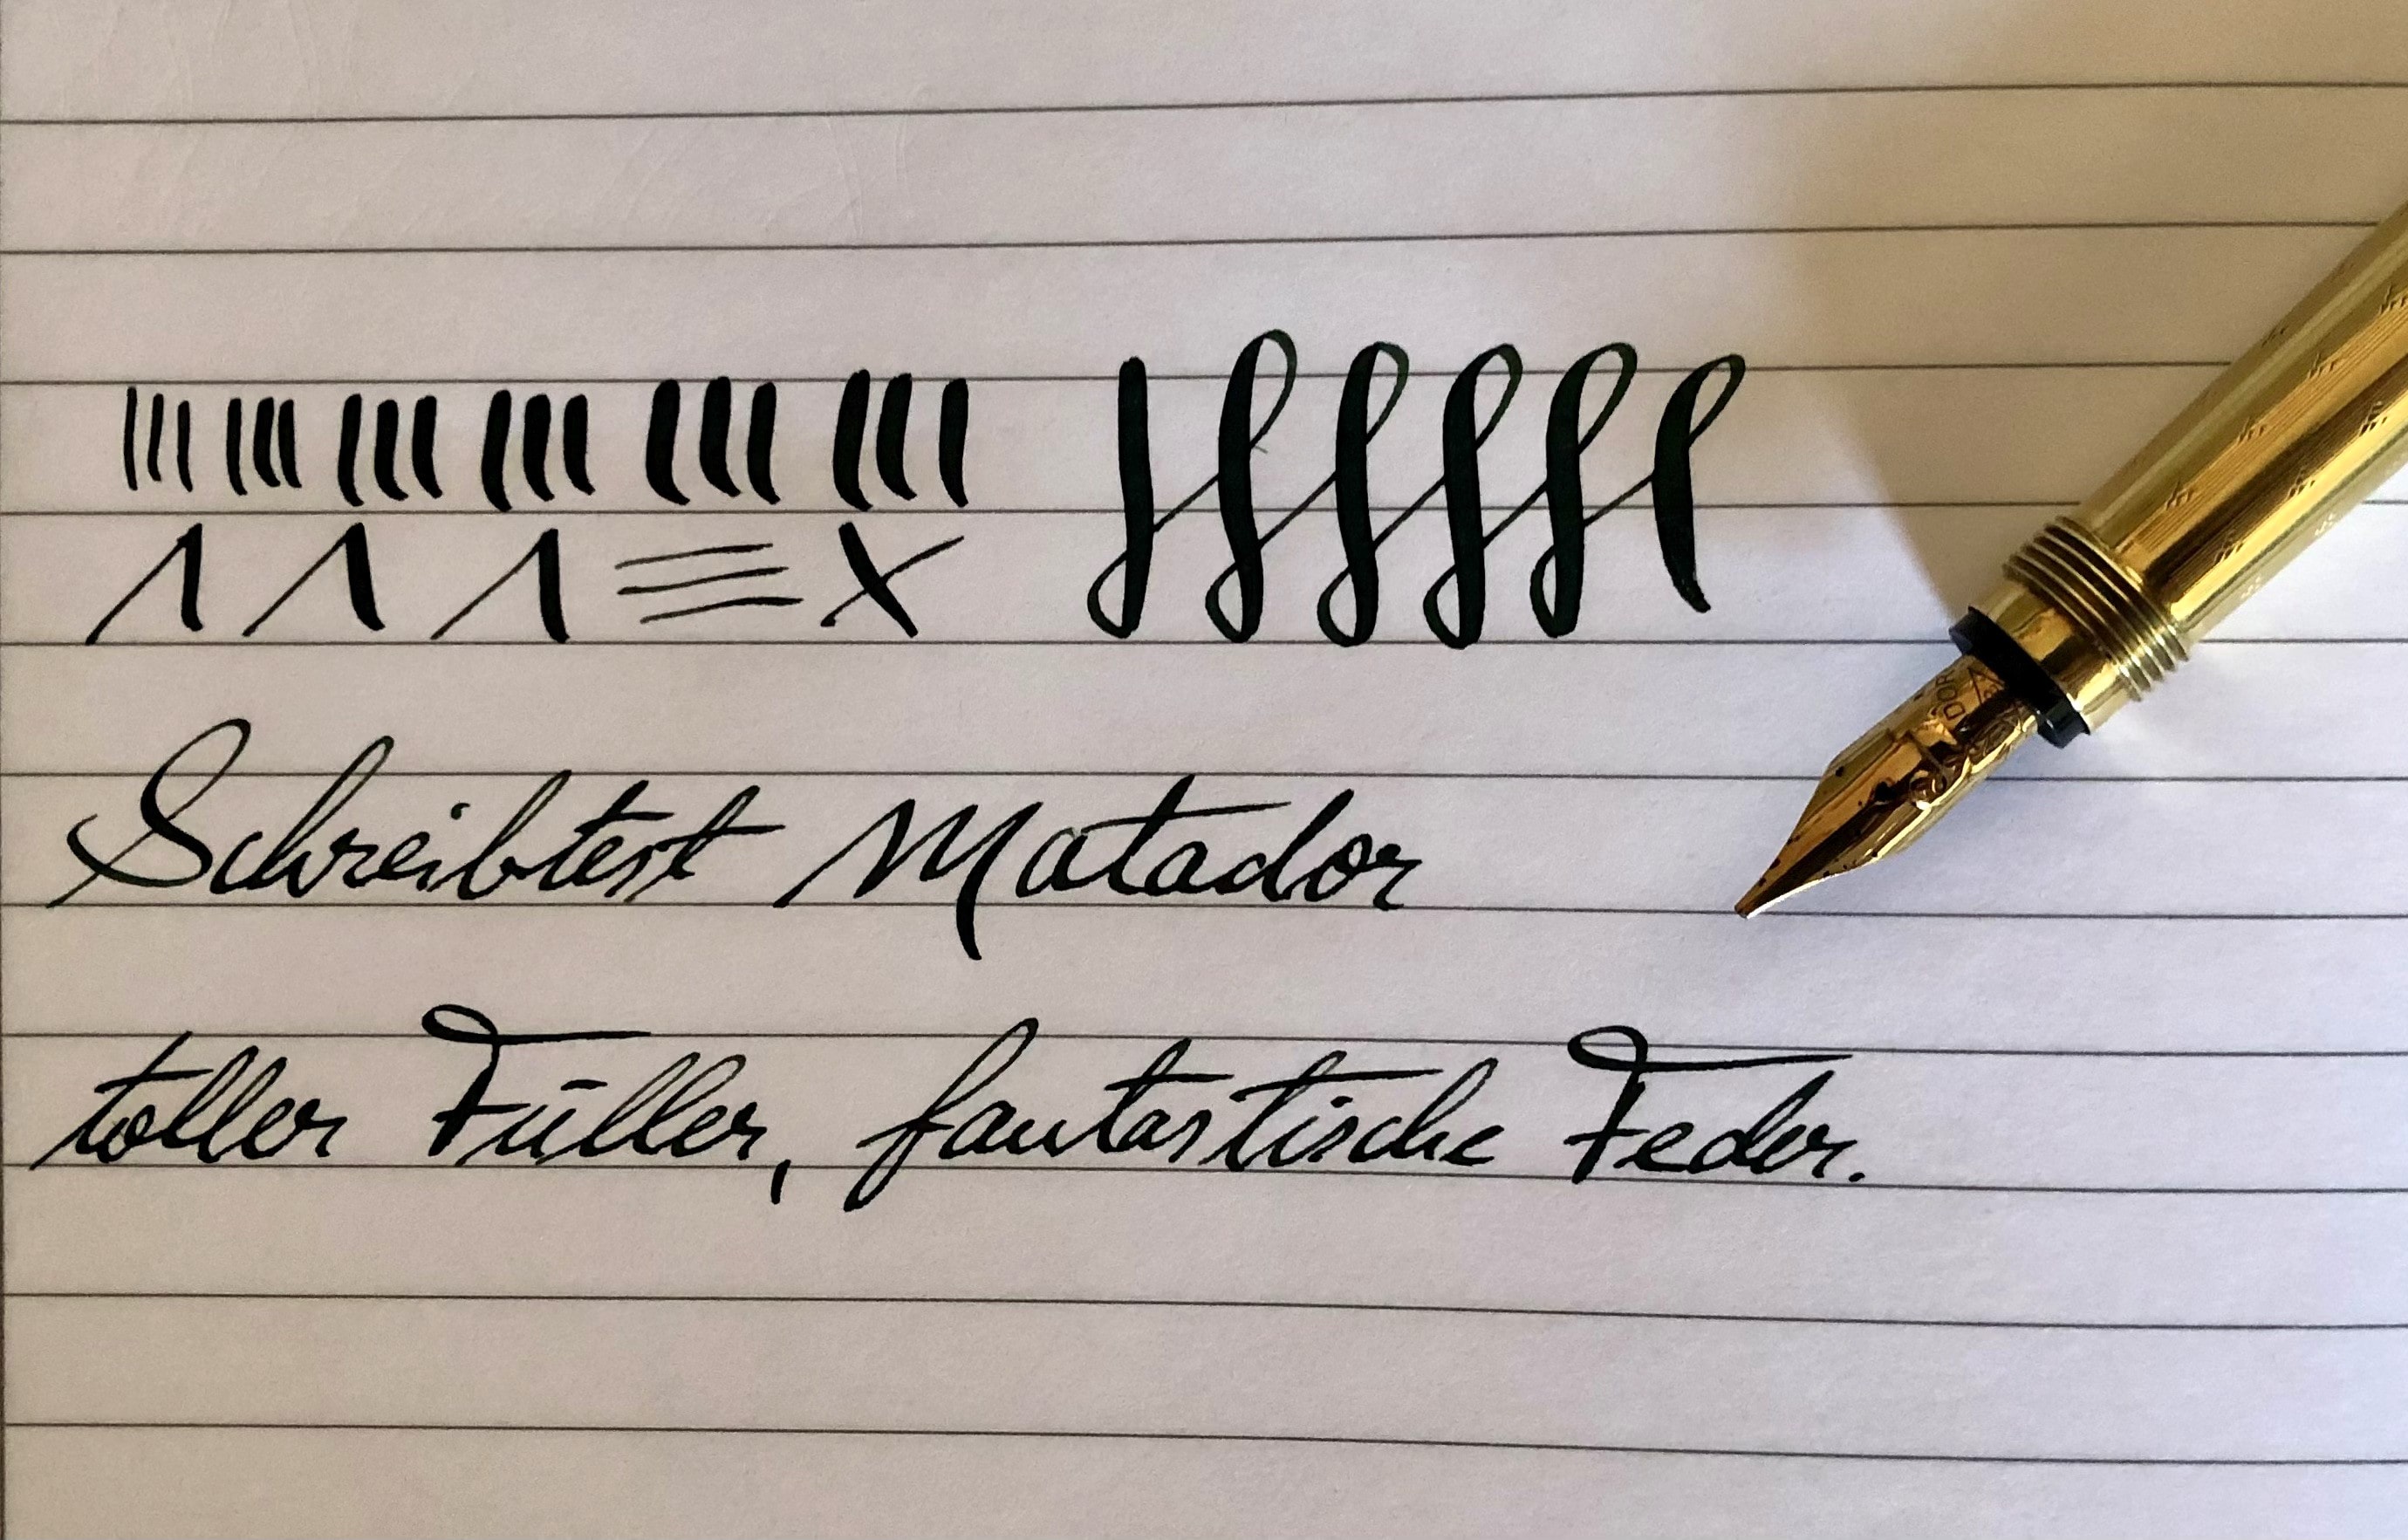 Schreibtest Matador
toller Füller, fantastische Feder.